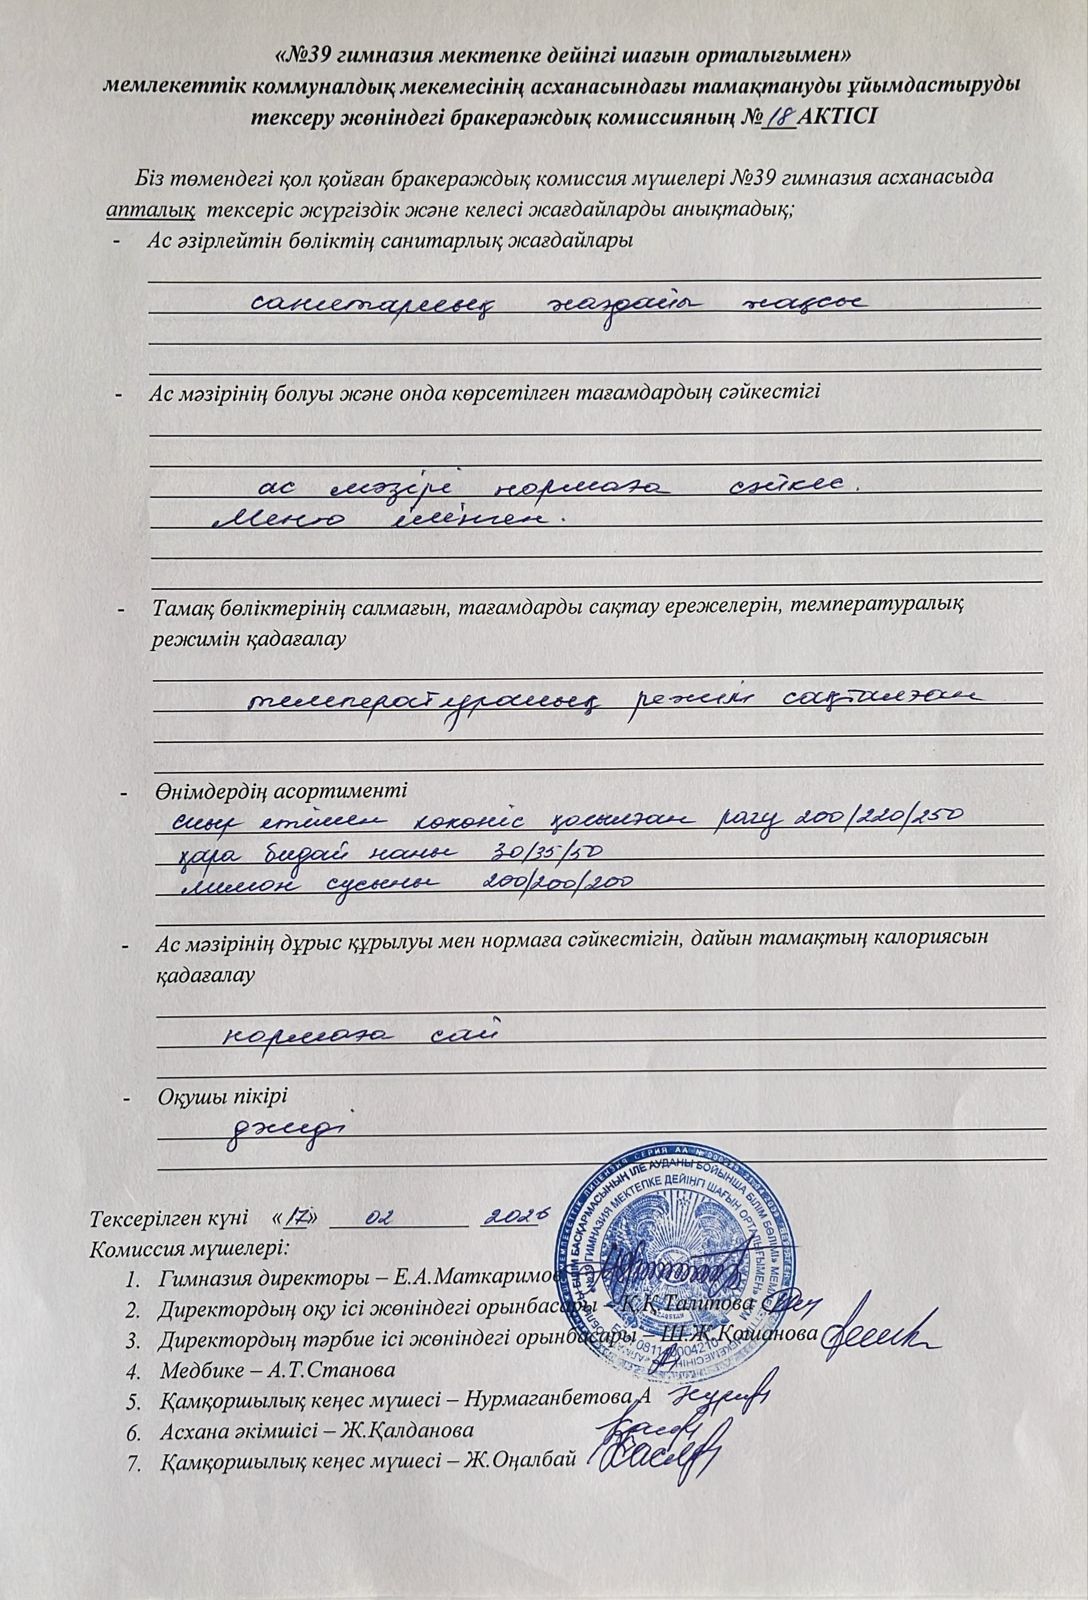 «№39 гимназия мектепке дейінгі шағын орталығымен»
мемлекеттік коммуналдық мекемесінің асханасындағы тамақтануды ұйымдастыруды
тексеру жөніндегі бракераждық комиссияның № 18 АКТІСІ
Біз төмендегі қол қойған бракераждық комиссия мүшелері №39 гимназия асханасыда
апталық тексеріс жүргіздік және келесі жағдайларды анықтадық;
- Ас әзірлейтін бөліктің санитарлық жағдайлары
санитарлық жағдайы жақсы
- Ас мәзірінің болуы және онда көрсетілген тағамдардың сәйкестігі
ас мәзірі нормаға сәйкес.
Меню ілінген.
- Тамақ бөліктерінің салмағын, тағамдарды сақтау ережелерін, температуралық
режимін қадағалау
температуралық режимі сақталған
- Өнімдердің асортименті
сиыр етімен көкөніс қосылған рагу 200/220/250
қара бидай наны 30/35/50
лимон сусыны 200/200/200
- Ас мәзірінің дұрыс құрылуы мен нормаға сәйкестігін, дайын тамақтың калориясын
қадағалау
нормаға сай
- Оқушы пікірі
дәмді
Тексерілген күні «17» 02 2026
Комиссия мүшелері:
1. Гимназия директоры – Е.А.Маткаримов
2. Директордың оқу ісі жөніндегі орынбасары – Қ.Қ.Талипова
3. Директордың тәрбие ісі жөніндегі орынбасары – Ш.Ж.Қошанова
4. Медбике – А.Т.Станова
5. Қамқоршылық кеңес мүшесі – Нурмаганбетова А
6. Асхана әкімшісі – Ж.Қалданова
7. Қамқоршылық кеңес мүшесі – Ж.Оңалбай